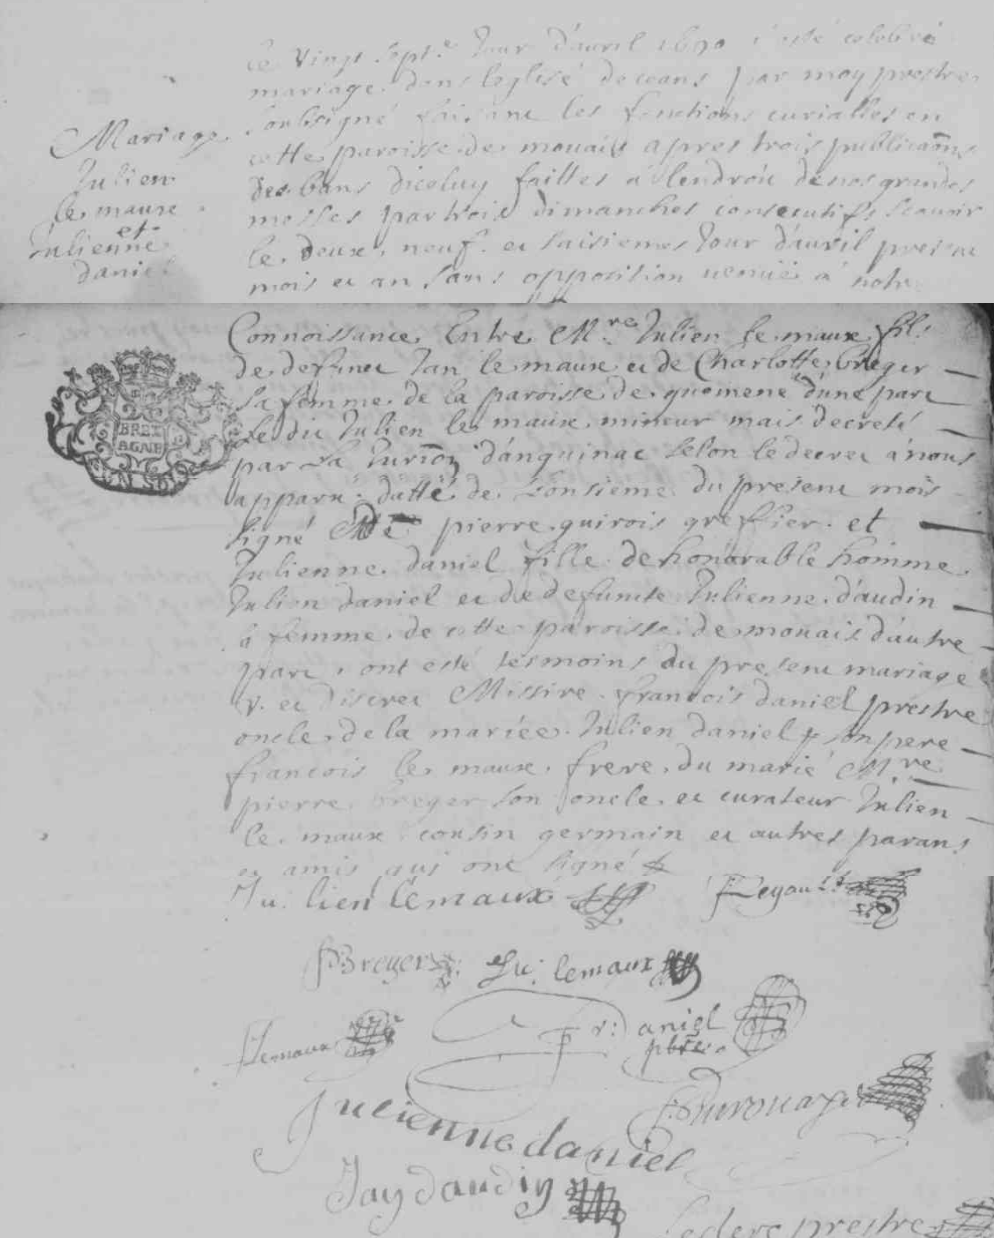 Mariage
Julien
le maux
et
Julienne
daniel
le vingt sept.e Jour d'auril 1690 a esté celebré
mariage dans l'eglise de ceans par moy prestre
soubsigné faisant les fonctions curialles en
cette paroisse de mouais apres trois publicaõns
des bans d'iceluy faittes a lendroit de nos grandes
messes par trois dimanches consecutifs scauoir
le deux, neuf et saisiemes Jour d'auril present
mois et an sans opposition venuë a notre
Connoissance Entre M.re Julien le maux fils
de deffunct Jan le maux et de Charlotte breger
sa femme de la paroisse de guemené d'une part
le dit Julien le maux mineur mais decreté
par la Jurion d'anguinac selon le decret a nous
apparu datté de onsieme du present mois
signé pierre guirois greffier et
Julienne daniel fille de honorable homme
Julien daniel et de defuncte Julienne d'audin
sa femme de cette paroisse de mouais d'autre
part, ont esté tesmoins du present mariage
v. et discret Missire francois daniel prestre
oncle de la mariée Julien daniel son pere
francois le maux frere du marié M.re
pierre breger son oncle et curateur Julien
le maux cousin germain et autres parans
et amis qui ont signé
BRET
AGNE
Ju: lien lemaux
PBreger Ju: lemaux
F lemaux fr: Daniel
pbre
Julienne daniel
Jay daudin
leclerc prestre